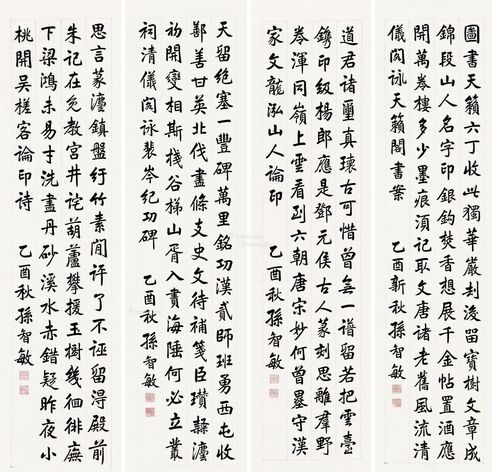 圖書天籟六丁收此獨華嚴刧浚留寶樹文章成
錦段山人名字印銀鈎焚香想展千金帖置酒應
開萬卷樓多少墨痕須記取文唐諸老舊風流清
儀閣詠天籟閣書案 乙酉新秋孫智敏
道君諸璽真瓌古可惜曾無一譜留若把雲臺
鐫印級楊郎應是鄧元侯古人篆刻思離群野
岑渾同嶺上雲看到六朝唐宋妙何曾墨守漢
家文龍泓山人論印 乙酉秋孫智敏
天留絕塞一豐碑萬里銘功漢貳師班勇西屯收
鄯善甘英北伐盡條支史文待補箋臣瓚隸灋
初開變相斯棧谷梯山胥入賣海陲何必立叢
祠清儀閣詠裴岑紀功碑 乙酉秋孫智敏
思言篆灋鎮盤紆竹素閒評了不誣留得殿前
朱記在免教宮井詫葫蘆攀援玉樹幾徊徘廡
下梁鴻未易才洗盡丹砂溪水赤錯疑昨夜小
桃開吳槎客論印詩 乙酉秋孫智敏